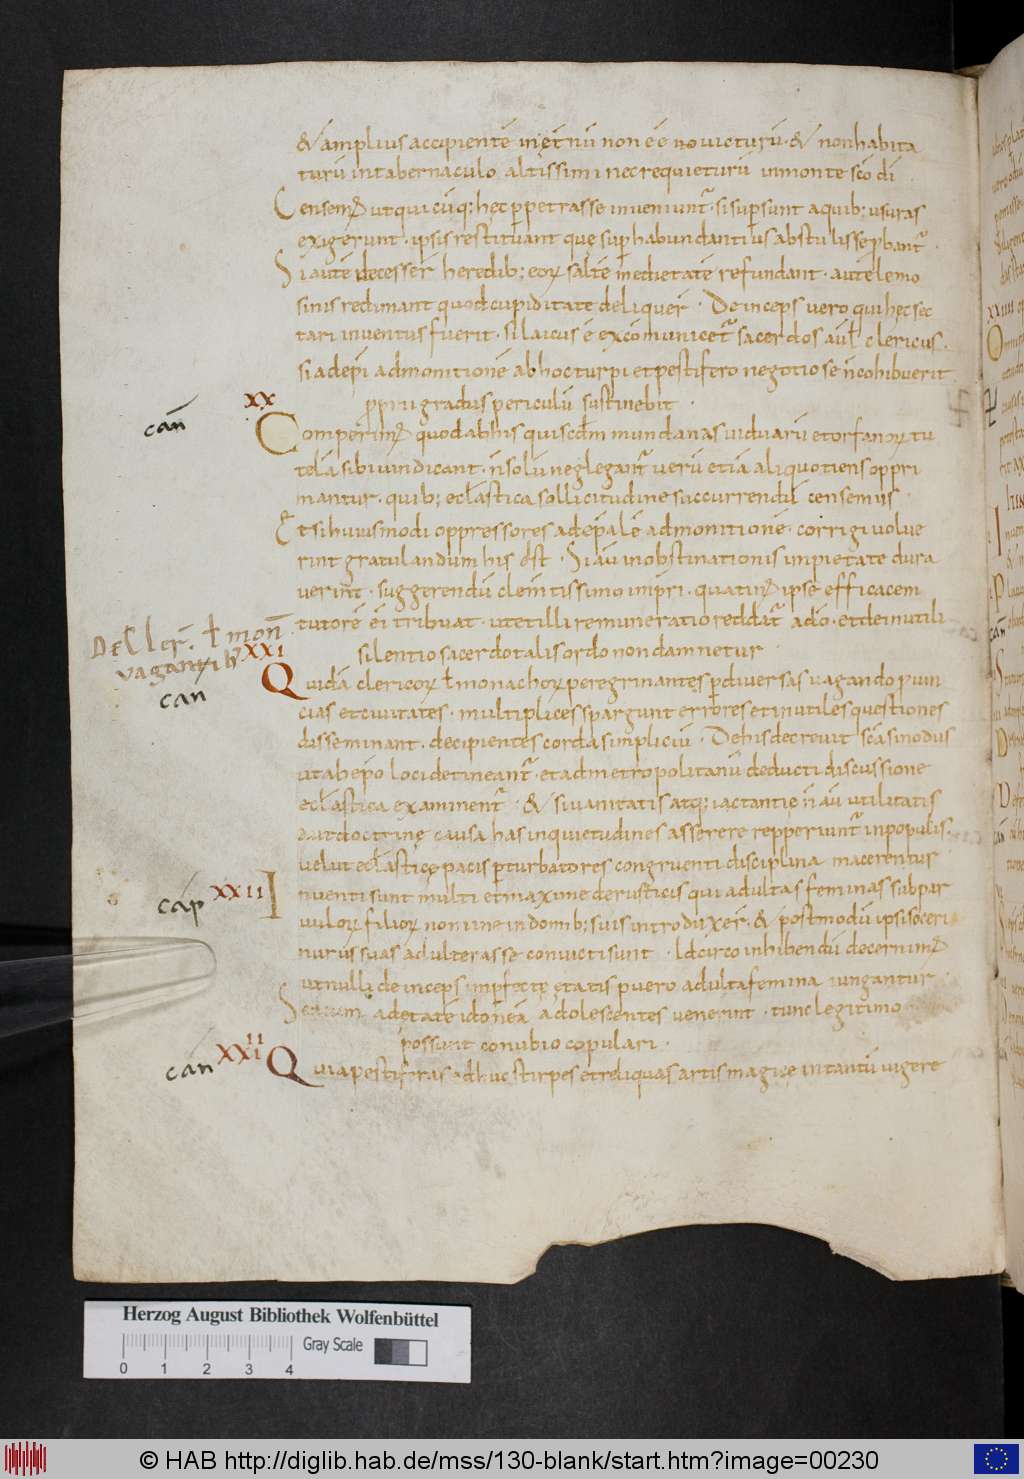 & amplius accipientē inęt nū non eē no uicturū · & non habita
turū in tabernaculo altissimi nec requieturū in monte sc̄o dī
Censem utqui cūq; hęc ppetrasse inueniunt · si supsunt a quib; usuras
exigerunt · ipsis restituant que suphabundantius abstulisse pbant ·
Si autē decesseř heredib; eoꝝ saltē medietatē refundant · aut elemo
sinis redimant quod cupiditate deliquer̄ · Deinceps uero qui hęc sec
tari inuentus fuerit · si laicus ē excōmunicet sacerdos aut̄ clericus ·
si ad ep̄i admonitionē ab hoc turpi et pestifero negotio se n̄ cohibuerit
proprii gradus periculū sustinebit ·
can̄
XX
Comperim quod ab his quisdm̄ mundanas uiduarū et orfanoꝝ tu
telā sibi uindicant · n̄ solū neglegant uerū etiā aliquotiens oppri
mantur · quib; ecl̄astica sollicitudine succurrendū censemus ·
Et si huiusmodi oppressores ad ep̄alē admonitionē · corrigi uolue
rint gratulandum his est · Si aū in obstinationis impietate dura
uerint · suggerendū clemtissimo imp̄ri · quatin ipse efficacem
tutorē ei tribuat · ut et illi remuneratio reddat a dō · et de inutili
silentio sacerdotalis ordo non damnetur ·
De Cler̄ · ł mon̄
uagantib
can
XXI
Quidā clericoꝝ ł monachoꝝ peregrinantes p diuersas uagando puin
cias et ciuitates · multiplices spargunt errores et inutiles questiones
disseminant · decipientes corda simpliciū · De his decreuit sc̄a sinodus
ut ab ep̄o loci detineant · et ad metropolitanū deducti discussione
ecl̄astica examinent · & si uanitatis atq; iactantie n̄ aū utilitatis
aut doctrinę causa has inquietudines asserere repperiunt in populis ·
uelut ecl̄asticę pacis pturbatores congruenti disciplina macerentur
cap
XXII
Inuenti sunt multi et maxime de rusticis qui adultas feminas sub par
uuloꝝ filioꝝ nomine in domib; suis introduxer̄ · & postmodū ipsi soceri
nurus suas adulterasse conuicti sunt · Idcirco inhibendū decernim
ut nulli deinceps imperfectę ętatis puero adulta femina iungantur ·
Sed cum ad etatē idoneā adolescentes uenerint · tunc legitimo
possunt conubio copulari ·
can
XXIII
Quia pestiferas adhuc stirpes et reliquas artis magicę in tantū uigere
Herzog August Bibliothek Wolfenbüttel
0 1 2 3 4
Gray Scale
© HAB http://diglib.hab.de/mss/130-blank/start.htm?image=00230